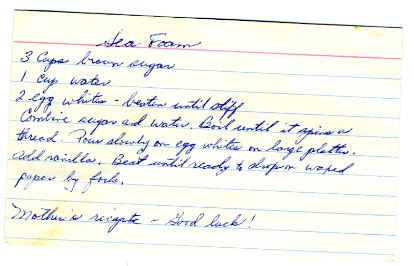 Sea Foam
3 Cups brown sugar
1 cup water
2 egg whites - beaten until stiff
Combine sugar and water. Boil until it spins a
thread. Pour slowly on egg whites on large platter.
Add vanilla. Beat until ready to drop on waxed
paper by fork.
Mother's recipe - Good luck!